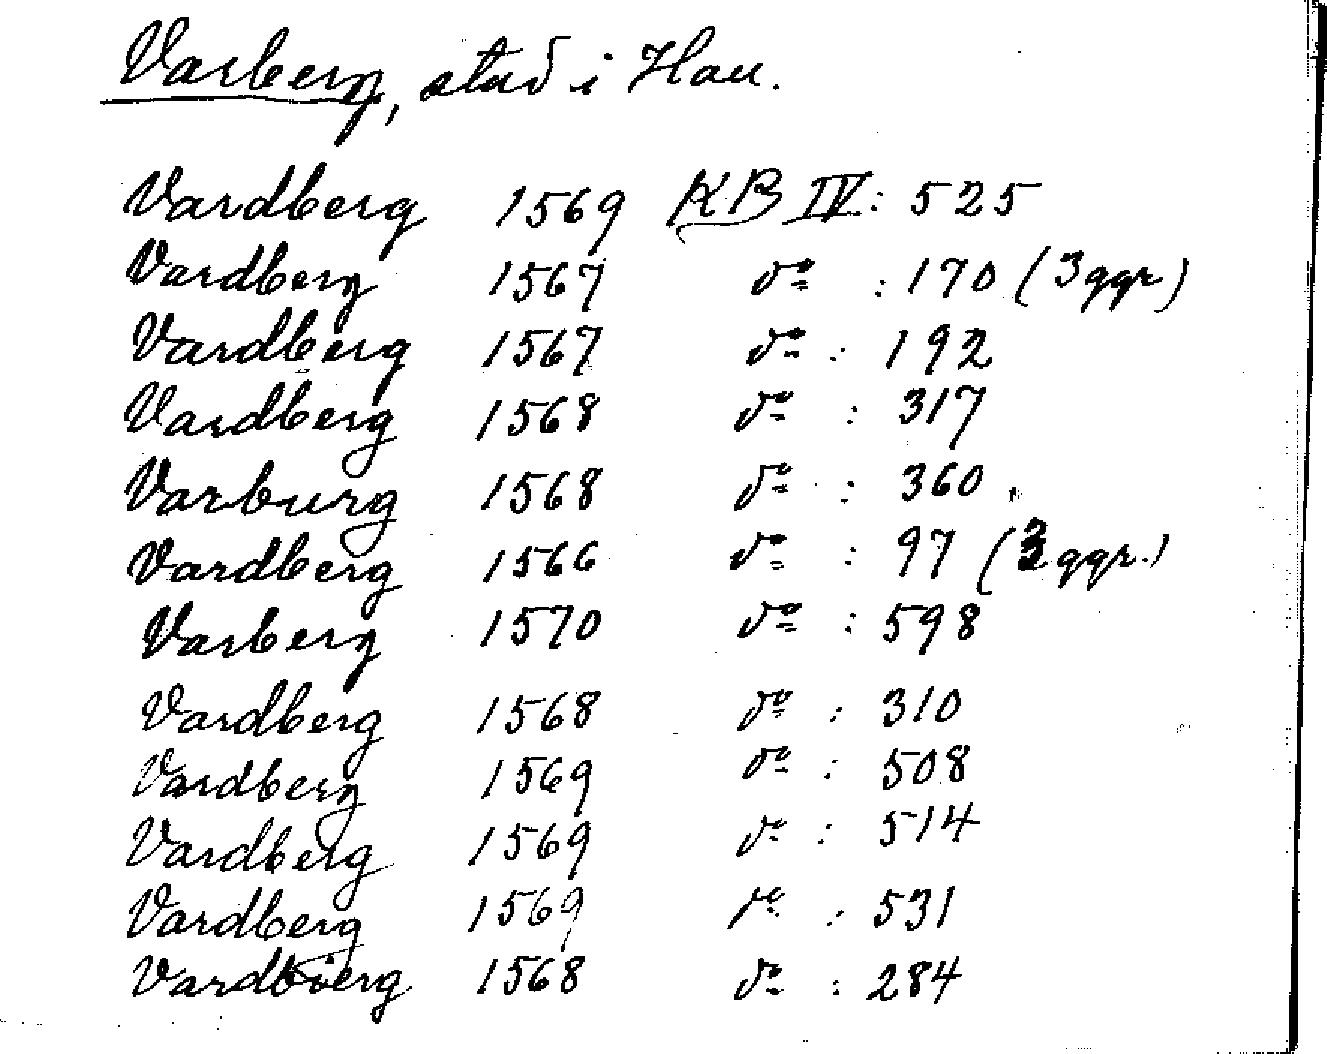 Varberg, stad i Hall.
Vardberg 1569 KB IV: 525
Vardberg 1567 do : 170 (3 ggr)
Vardberg 1567 do : 192
Vardberg 1568 do : 317
Varburg 1568 do : 360.
Vardberg 1566 do : 97 (3 ggr.)
Varberg 1570 do : 598
Vardberg 1568 do : 310
Vardberg 1569 do : 508
Vardberg 1569 do : 514
Vardberg 1569 do : 531
Vardbierg 1568 do : 284